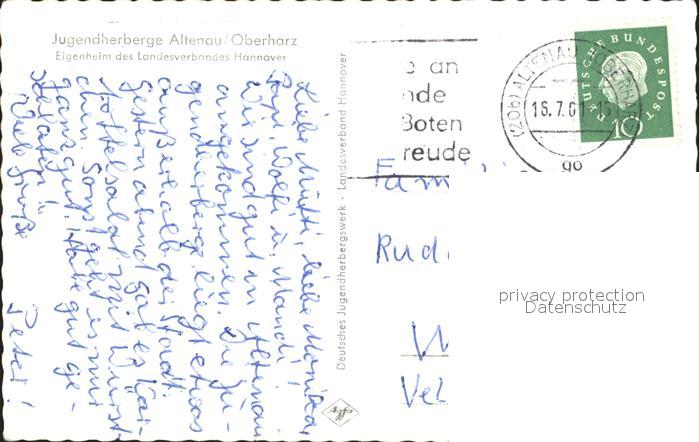 Jugendherberge Altenau/Oberharz
Eigenheim des Landesverbandes Hannover
Liebe Mutti, liebe Monika,
Papi, Wolfi u. Mandi!
Wir sind gut in Altenau
angekommen. Die Ju-
gendherberge liegt etwas
außerhalb der Stadt.
Gestern abend gab es Kar-
toffelsalat mit Würst-
chen. Sonst geht es mir
ganz gut. Habe gut ge-
schlafen.
Viele Grüße
Peter!
Deutsches Jugendherbergswerk - Landesverband Hannover
e an
nde
Boten
reude
(20b) ALTENAU (OBERHARZ)
16.7.61-15
DEUTSCHE BUNDESPOST
10
Fam
Rud
W
Vel
privacy protection
Datenschutz